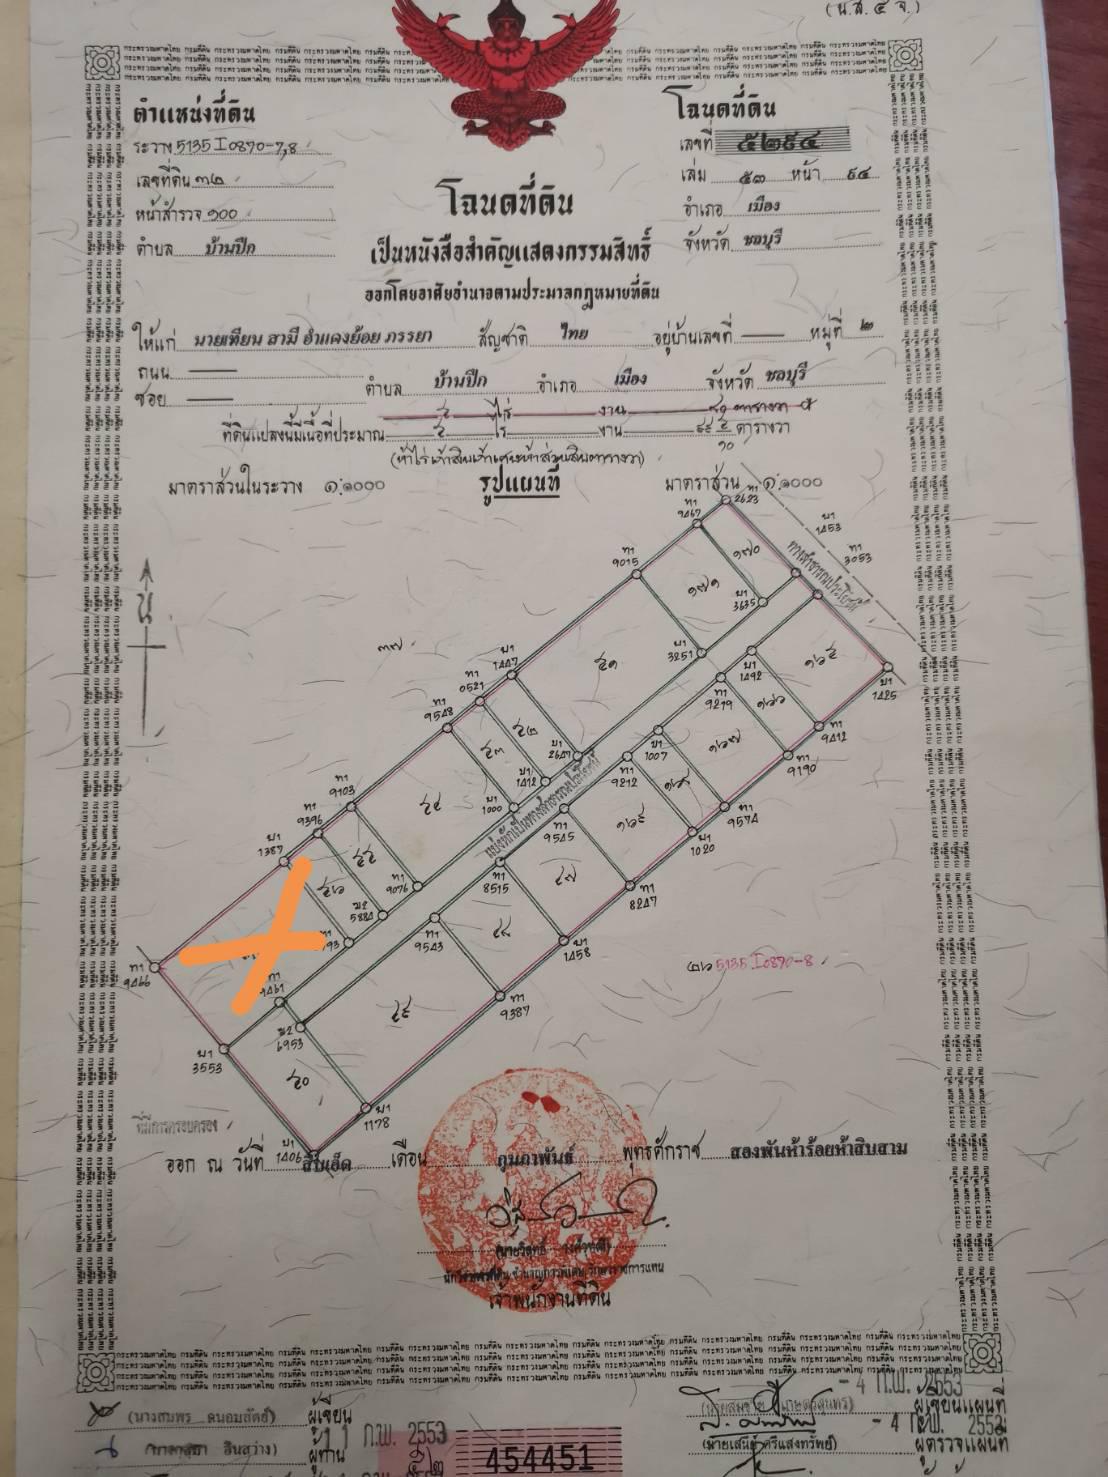 (น.ส. ๔ จ.)
ตำแหน่งที่ดิน
ระวาง 5135 I 0870-7,8
เลขที่ดิน ๓๒
หน้าสำรวจ ๑๐๐
ตำบล บ้านปึก
โฉนดที่ดิน
เลขที่ ๕๒๙๔
เล่ม ๕๓ หน้า ๙๔
อำเภอ เมือง
จังหวัด ชลบุรี
โฉนดที่ดิน
เป็นหนังสือสำคัญแสดงกรรมสิทธิ์
ออกโดยอาศัยอำนาจตามประมวลกฎหมายที่ดิน
ให้แก่ นายเทียน สามี อำแดงย้อย ภรรยา สัญชาติ ไทย อยู่บ้านเลขที่ — หมู่ที่ ๒
ถนน —
ซอย — ตำบล บ้านปึก อำเภอ เมือง จังหวัด ชลบุรี
ไร่ งาน ตารางวา
ที่ดินแปลงนี้มีเนื้อที่ประมาณ ๕ ไร่ — งาน ๙๙ ๕/๑๐ ตารางวา
(ห้าไร่เก้าสิบเก้าเศษห้าส่วนสิบตารางวา)
มาตราส่วนในระวาง ๑:๑๐๐๐ รูปแผนที่ มาตราส่วน ๑:๑๐๐๐
น
๓๗
ท1 2623
ท1 9467
ท1 9015
บ1 1453
ท1 3053
ทางสาธารณประโยชน์
๑๗๐
๑๗๑
บ1 3635
บ1 3251
บ1 1492
ท1 9219
บ1 1425
ท1 9412
ท1 9190
ท1 9574
บ1 1020
ท1 8247
บ1 1458
ท1 9387
บ1 1178
บ1 1406
บ1 3553
ท1 9466
บ1 1387
ท1 9396
ท1 9103
ท1 9548
ท1 0521
บ1 1447
บ1 2647
บ1 1412
บ1 1000
ท1 9076
บ2 5884
ท1 9461
บ2 6953
ท1 9543
ท1 8515
ท1 9545
ท1 9212
บ1 1007
แบ่งหักเป็นทางสาธารณประโยชน์
๒๖ 5135 I 0870-8
ที่มีการครอบครอง
ออก ณ วันที่ สิบเอ็ด เดือน กุมภาพันธ์ พุทธศักราช สองพันห้าร้อยห้าสิบสาม
เจ้าพนักงานที่ดิน
(นางสมพร ถนอมสัตย์) ผู้เขียน
ผู้ทาน
11 ก.พ. 2553
454451
- 4 ก.พ. 2553
ผู้เขียนแผนที่
(นายเสนีย์ ศรีแสงทรัพย์) ผู้ตรวจแผนที่
- 4 ก.พ. 2553